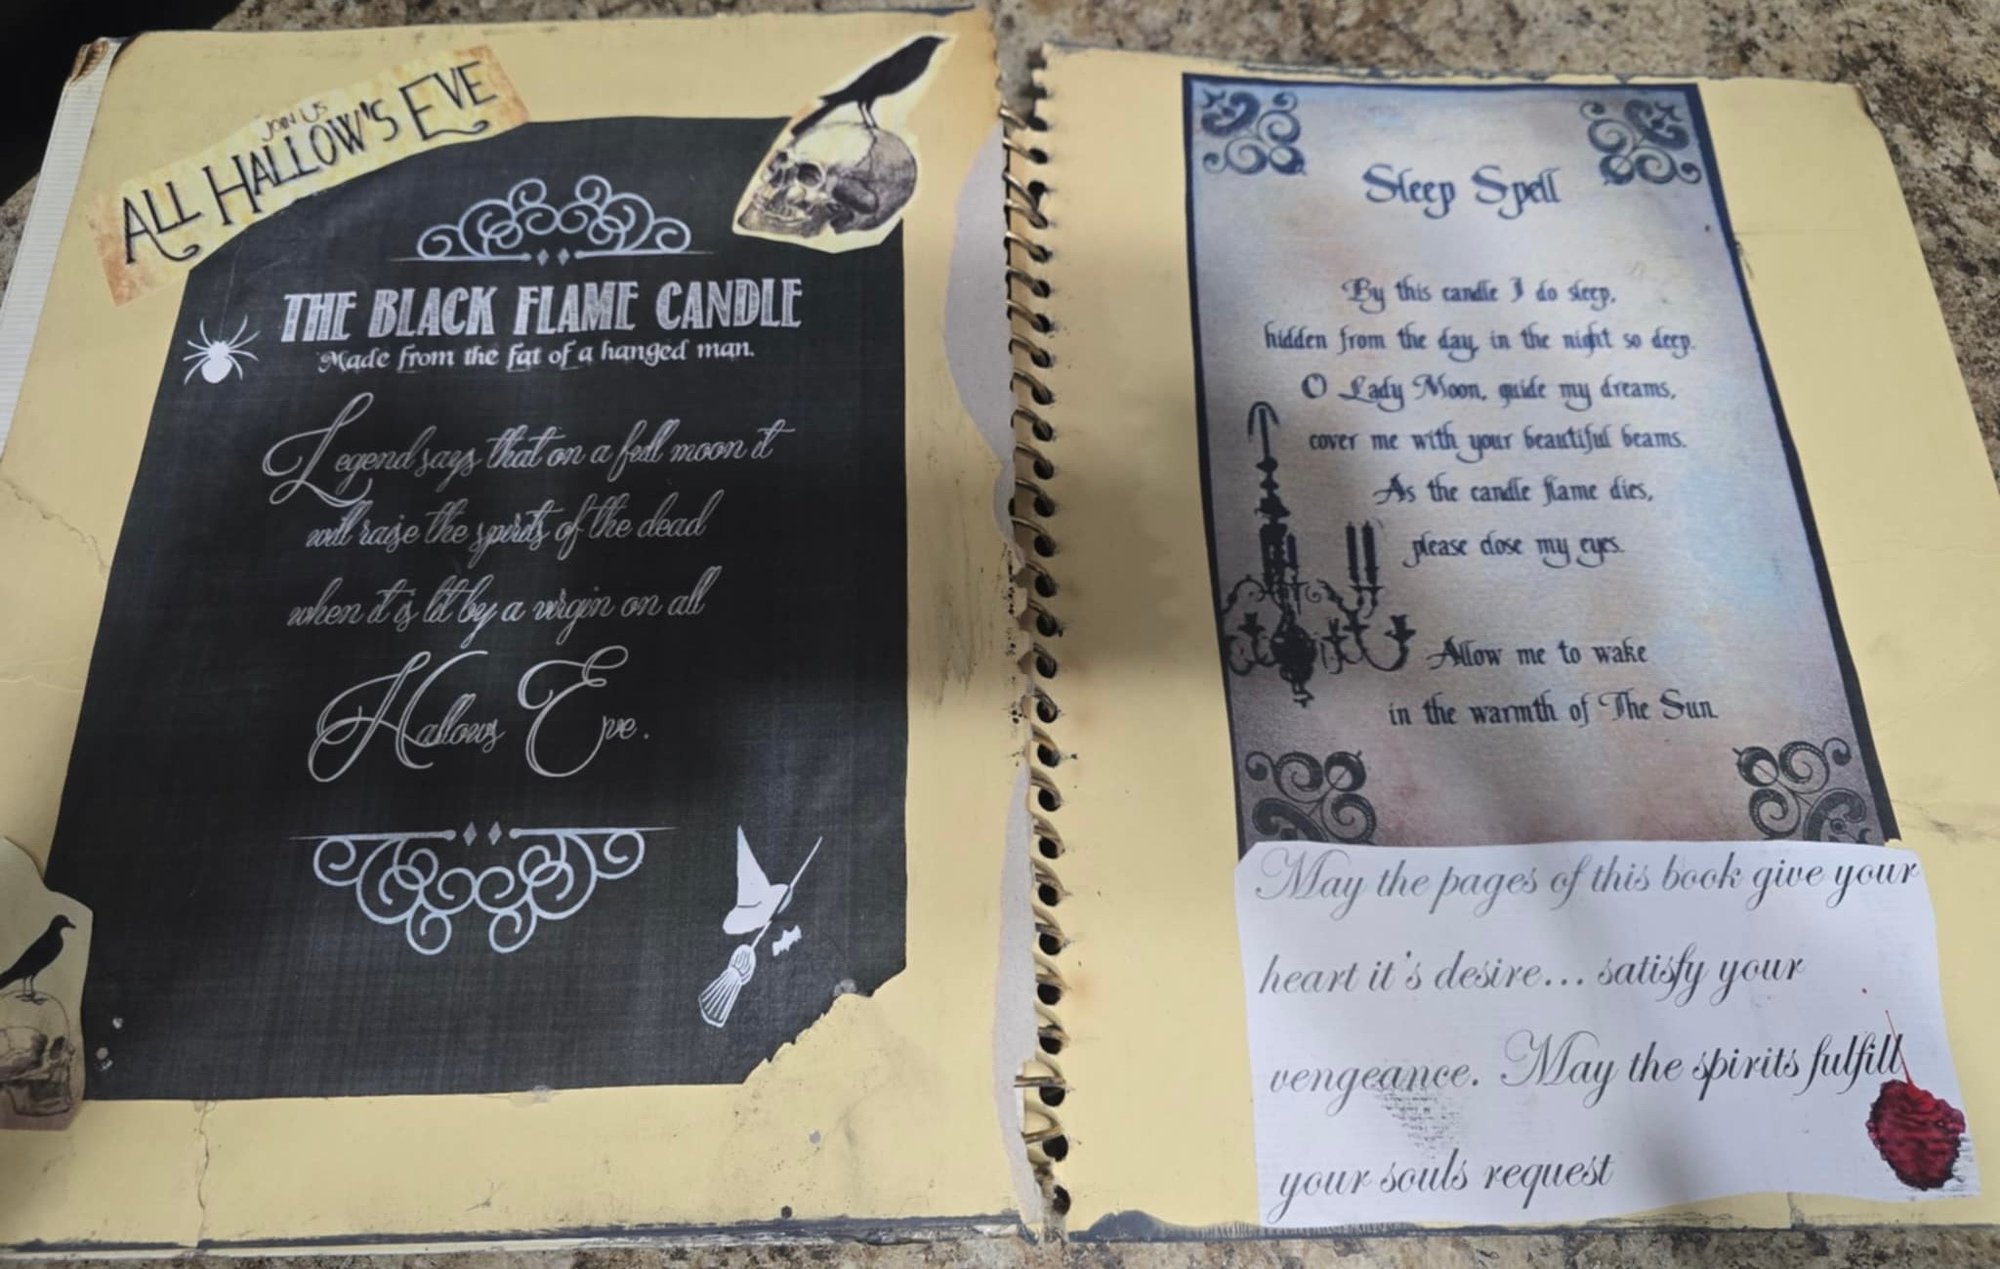 JOIN US
ALL HALLOW'S EVE
THE BLACK FLAME CANDLE
Made from the fat of a hanged man.
Legend says that on a full moon it
will raise the spirits of the dead
when it is lit by a virgin on all
Hallows Eve.
Sleep Spell
By this candle I do sleep,
hidden from the day, in the night so deep.
O Lady Moon, guide my dreams,
cover me with your beautiful beams.
As the candle flame dies,
please close my eyes.
Allow me to wake
in the warmth of The Sun.
May the pages of this book give your
heart it's desire... satisfy your
vengeance. May the spirits fulfill
your souls request